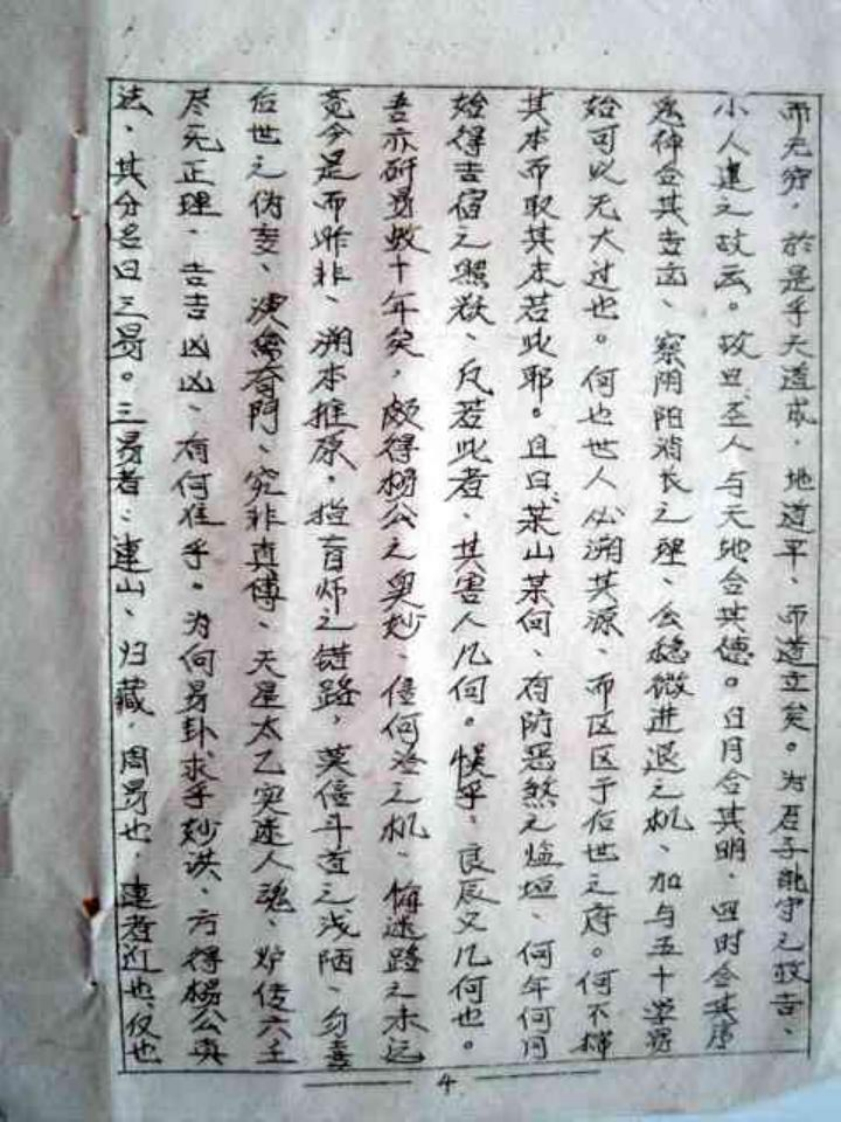 而无穷，於是乎天道成，地道平、而道立矣。为君子能守之故吉、
小人违之故云。故曰、圣人与天地合其德。日月合其明、四时合其序
鬼神合其吉凶、察阴阳消长之理、么稳微进退之机、加与五十学易
始可以无大过也。何也世人必溯其源、而区区于后世之府。何不揣
其本而取其末若此耶。且曰、某山某向、有防恶煞之临垣、何年何月
始得吉宿之照欤、反若此者、其害人几何。悮乎、良辰又几何也。
吾亦研易数十年矣，颇得杨公之奥妙、僅何冶之机、悔迷路之未远
竟今是而昨非、溯本推原，指盲师之错路，莫僅斗首之浅陋、勿喜
后世之伪妄、演禽奇門、究非真傳、天星太乙实迷人魂、炉传六壬
尽无正理、吉吉凶凶、有何准乎。为何易卦求乎妙洪、方得楊公真
法、其分名曰三易。三易者：連山、归藏，周易也，連者近也、仅也
4